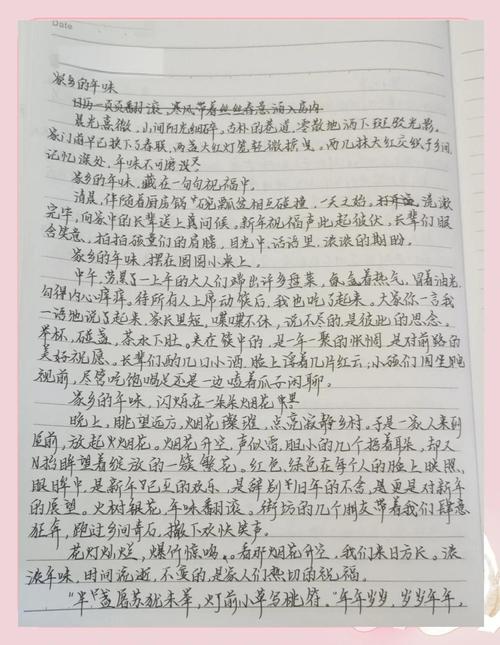 Date
家乡的年味
日历一页页翻滚，寒风带着丝丝春意涌入房内
晨光熹微，山间阳光细碎，古朴的巷道，零散地洒下斑驳光影。
家门前早已换下了春联，两盏大红灯笼轻微摇曳。两几抹大红交织于乡间，
记忆深处，年味不可磨灭
家乡的年味，藏在一句句祝福中。
清晨，伴随着厨房锅碗瓢盆相互碰撞，一天之始。洗漱
完毕，向家中的长辈送上真问候。新年祝福声此起彼伏，长辈们眼
含笑意，拍拍孩童们的肩膀，目光中，话语里，滚滚的期盼。
家乡的年味，摆在团圆小桌上。
中午，劳累了一上午的大人们端出许多盘菜，氤氲着热气，冒着油光，
勾得内心痒痒。待所有人上席动筷后，我也吃了起来。大家你一言我
一语地说了起来，家长里短，喋喋不休，说不尽的是彼此的思念。
举杯，碰盏，茶水下肚。夹在筷中的，是一年一聚的怅惘，是对前路的
美好祝愿。长辈们酌几口小酒，脸上浮着几片红云；小孩们围坐电
视前，尽管吃饱喝足还是一边嗑着瓜子闲聊。
家乡的年味，闪烁在一朵朵烟花里
晚上，眺望远方，烟花璀璨，点亮寂静乡村。于是一家人来到
屋前，放起了烟花。烟花升空，声似雷，胆小的几个捂着耳朵，却又
抬眸望着绽放的一簇繁花。红色，绿色在每个人的脸上映照，
眼眸中，是新年已至的欢乐，是辞别旧年的不舍，是更是对新年
的展望。火树银花，年味翻滚。街坊的几个朋友带着我们肆意
狂奔，跑过乡间青石，撒下欢快笑声。
花灯灿烂，爆竹惊鸣。看那烟花升空，我们来日方长。滚
滚年味，时间流逝，不变的，是家人们热切的祝福。
“半盏屠苏犹未举，灯前小草写桃符。”年年岁岁，岁岁年年，